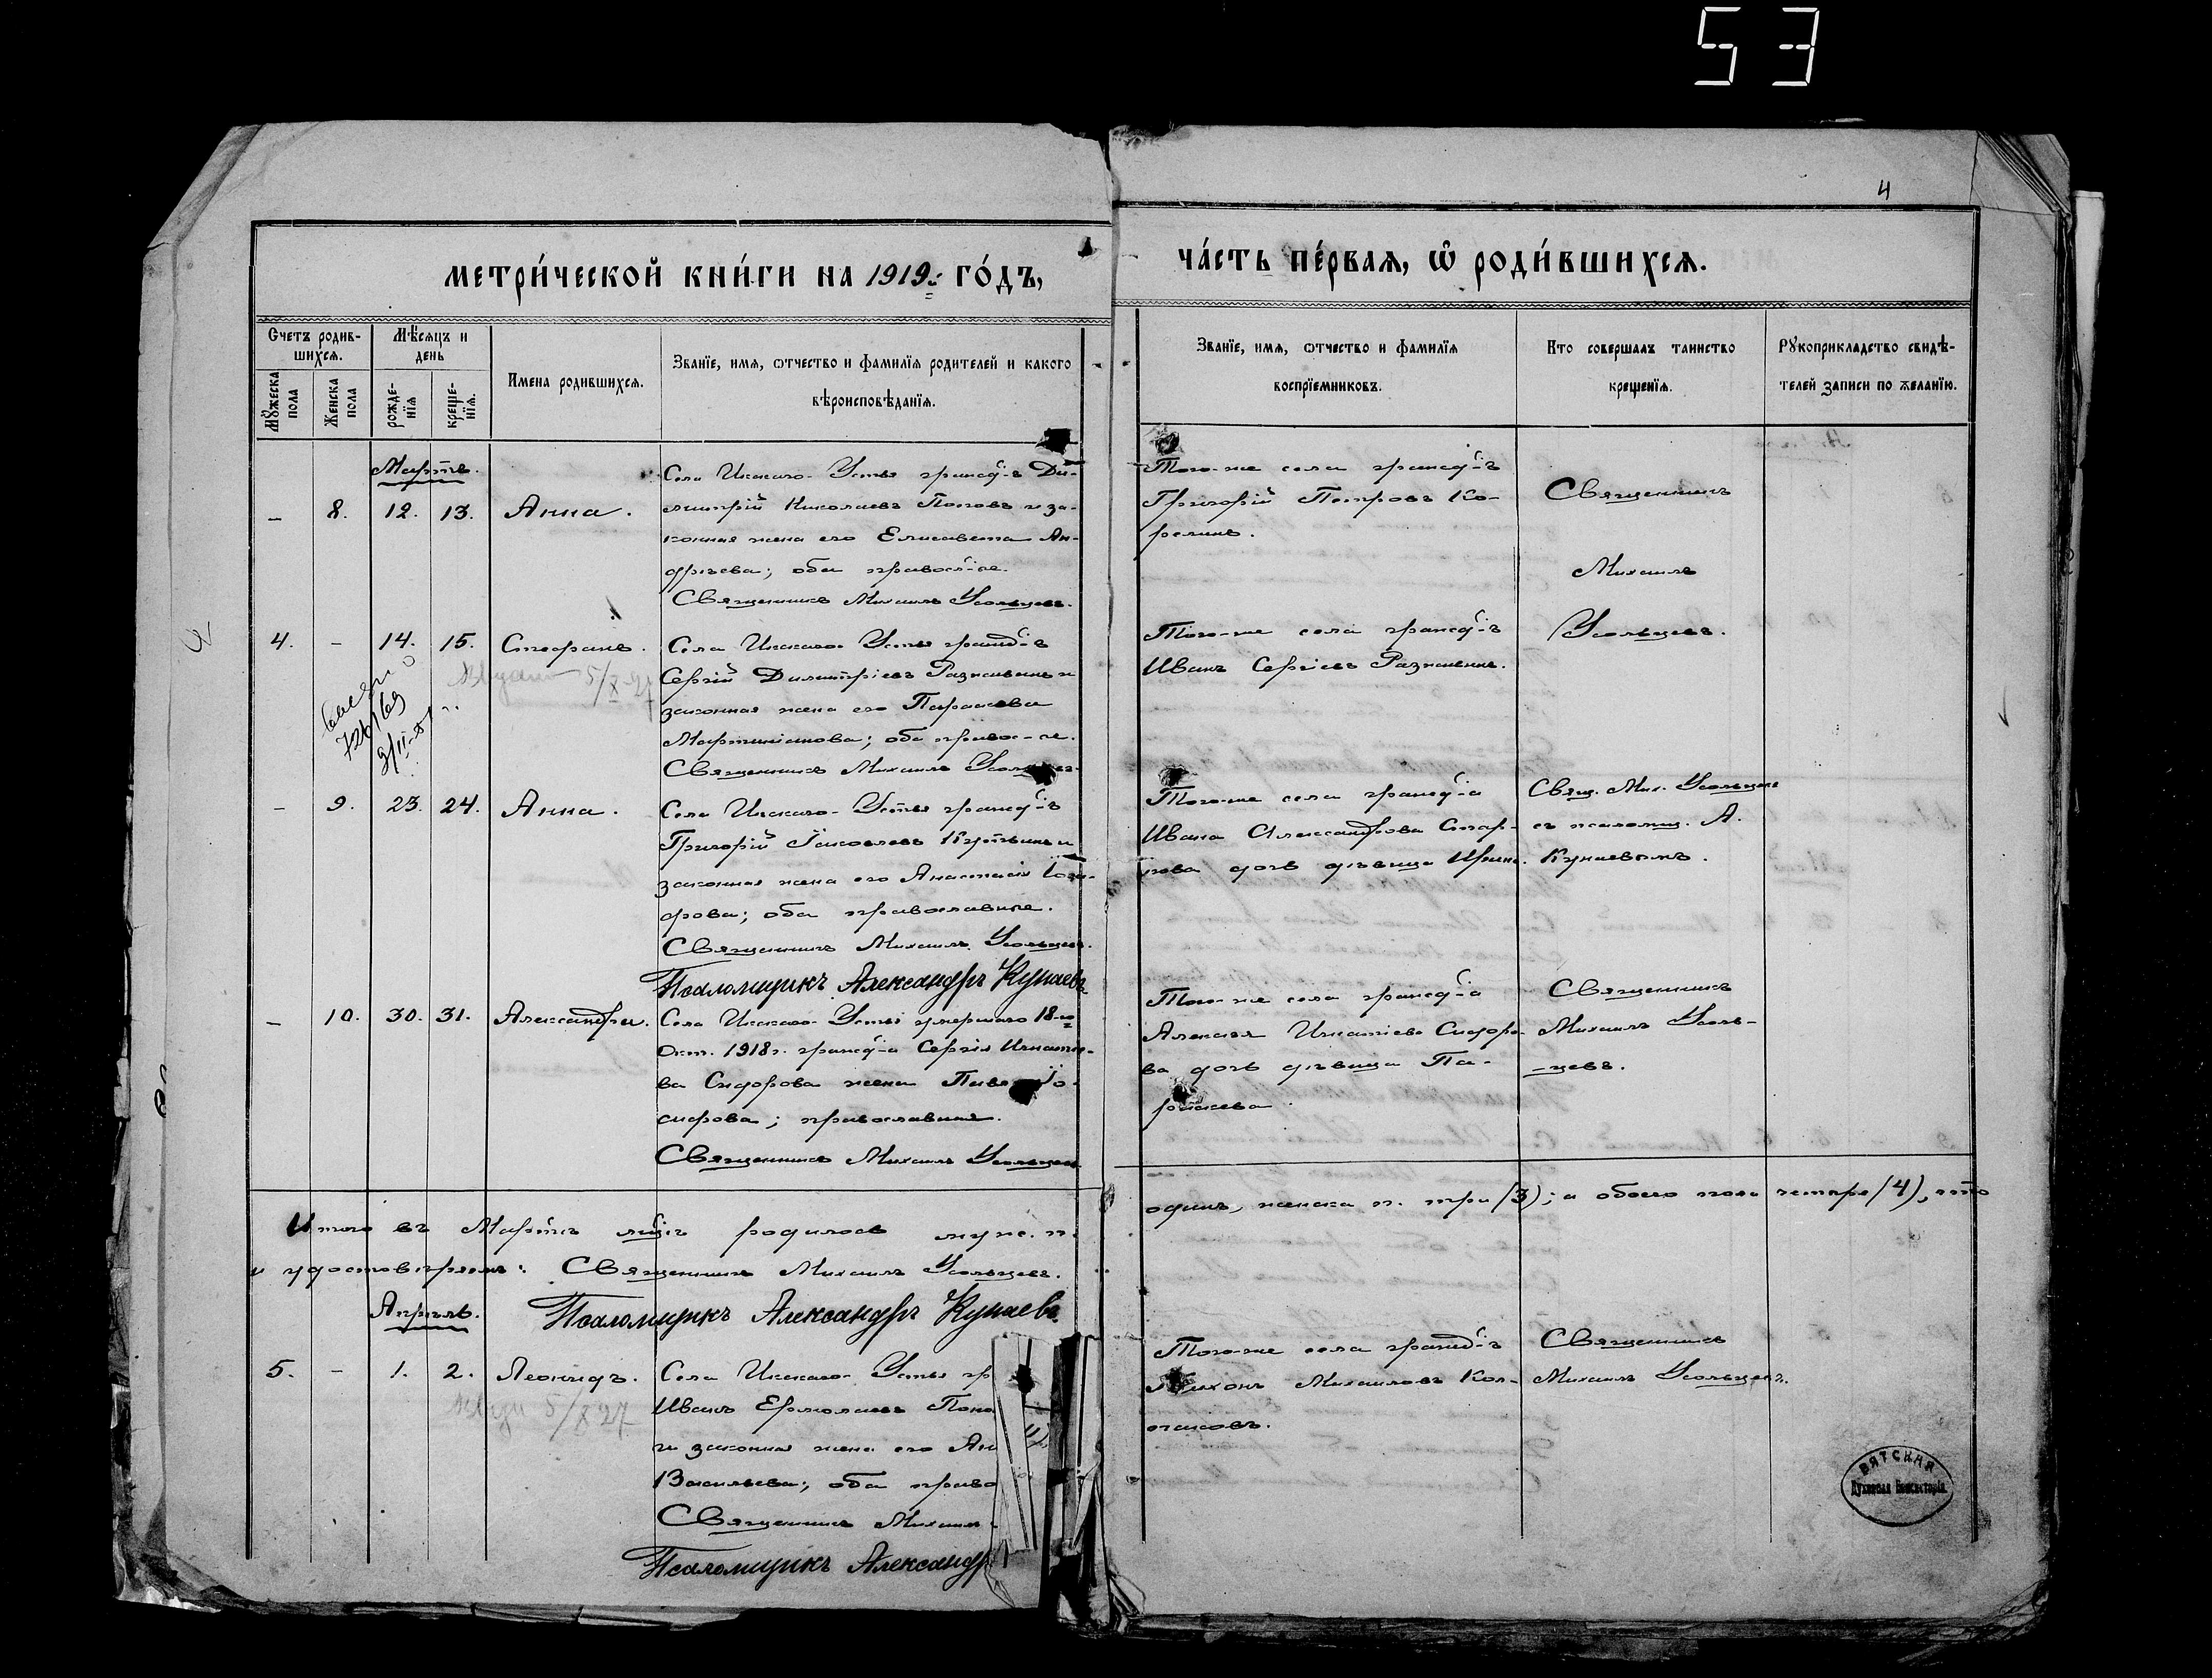 53
4
МЕТРИ́ЧЕСКОЙ КНИ́ГИ НА 1919 г. ГО́ДЪ,
ЧА́СТЬ ПЕ́РВАЯ, Ѡ҆ РОДИ́ВШИХСЯ.
Счетъ родив-
шихся.
Мѣсяцъ и
день
Мꙋжеска
пола
Женска
пола
рожде-
нїя
креще-
нїя.
Имена родившихся.
Званїе, имя, ѿчество и фамилїя родителей и какого
вѣроисповѣданїя.
Званїе, имя, ѿчество и фамилїя
воспрїемниковъ.
Кто совершалъ таинство
крещенїя.
Рꙋкоприкладство свидѣ-
телей записи по желанїю.
Мартъ.
– 8. 12. 13. Анна.
Села Устья гражд-нъ Ди-
митрій Николаевъ Поповъ и за-
конная жена его Елисавета Ан-
дреева; оба правосл-ные.
Священникъ Михаилъ Усольцевъ.
Того-же села гражд-нъ
Григорій Петровъ Ко-
релинъ.
Священникъ
Михаилъ
Усольцевъ.
4. – 14. 15. Стефанъ.
5/X-27
Села Устья гражд-нъ
Сергій Димитріевъ и
законная жена его Параскева
Мартиніанова; оба правос-ые.
Священникъ Михаилъ
Того-же села гражд-нъ
Иванъ Сергіевъ
– 9. 23. 24. Анна.
Села Устья гражд-нъ
Григорій Іаковлевъ и
законная жена его Анастасія
дрова; оба православные.
Священникъ Михаилъ Усольцевъ.
Псаломщикъ Александръ Кунаевъ.
Того-же села гражд-на
Ивана Александрова
дочь дѣвица Ирина.
Свящ. Мих. Усольцевъ
съ псаломщ. А.
Кунаевымъ.
– 10. 30. 31. Александра.
Села Устья умершаго 18-го
Окт. 1918 г. гражд-на Сергія Игнатіе-
ва Сидорова жена
сифова; православная.
Священникъ Михаилъ Усольцевъ
Того-же села гражд-на
Алексѣя Игнатіева Сидоро-
ва дочь дѣвица Па-
раскева.
Священникъ
Михаилъ Усоль-
-цевъ.
Итого въ Мартѣ м-цѣ родилось муж. п.
одинъ, женска п. три (3); а обоего пола четыре (4), что
и удостовѣряемъ: Священникъ Михаилъ Усольцевъ.
Псаломщикъ Александръ Кунаевъ.
Апрѣль.
5. – 1. 2. Леонидъ.
5/X 27
Села Устья гр
Иванъ Ермолаевъ
и законная жена его Ан
Васильева; оба право
Священникъ Михаилъ
Псаломщикъ Александр
Того-же села гражд-нъ
Тихонъ Михаиловъ Кол-
Священникъ
Михаилъ Усольцевъ.
ВЯТСКАЯ
Духовная Консисторія